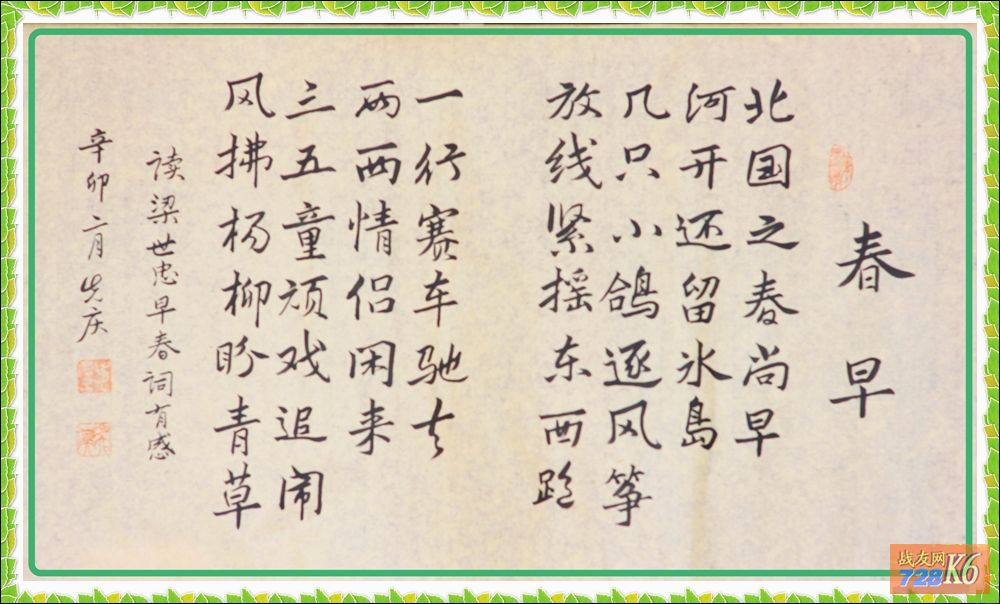 春早
北国之春尚早
河开还留冰岛
几只小鸽逐风筝
放线紧摇东西跑
一行赛车驰去
两两情侣闲来
三五童顽戏追闹
风拂杨柳盼青草
读梁世忠早春词有感
辛卯二月先庆
战友网
728K6